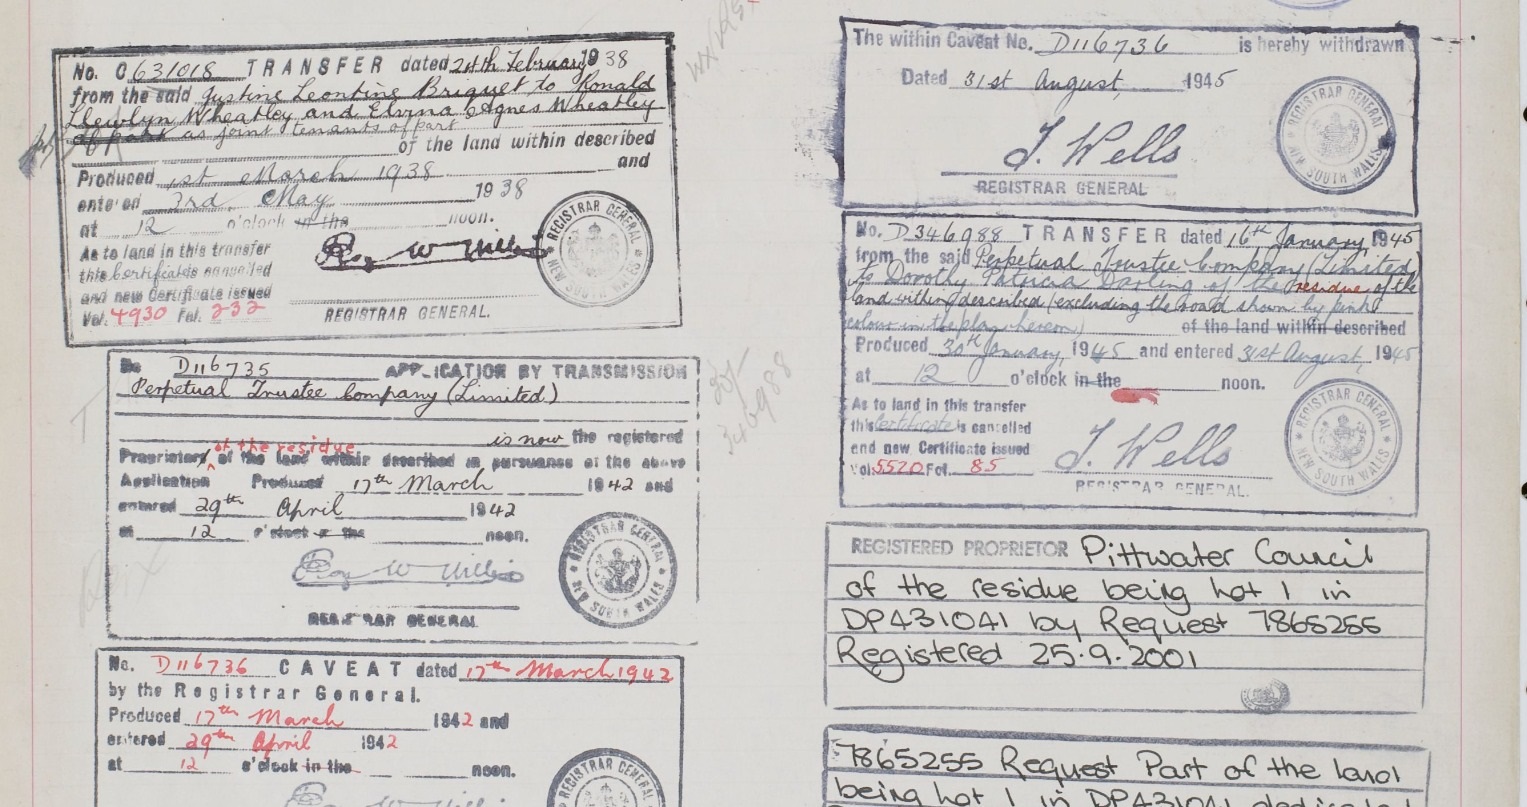 No. C631018 TRANSFER dated 24th February 1938
from the said Justine Leontine Briquet to Ronald
Llewlyn Wheatley and Elvina Agnes Wheatley
as joint tenants of part
of the land within described
Produced 1st March 1938 and
entered 3rd May 1938
at 12 o'clock in the noon.
As to land in this transfer
this Certificate is cancelled
and new Certificate issued
Vol. 4930 Fol. 232
REGISTRAR GENERAL.
REGISTRAR GENERAL
NEW SOUTH WALES
No D116735 APPLICATION BY TRANSMISSION
Perpetual Trustee Company (Limited)
is now the registered
of the residue
Proprietor of the land within described in pursuance of the above
Application Produced 17th March 1942 and
entered 29th April 1942
at 12 o'clock in the noon.
REGISTRAR GENERAL
REGISTRAR GENERAL
NEW SOUTH WALES
346988
No. D116736 CAVEAT dated 17th March 1942
by the Registrar General.
Produced 17th March 1942 and
entered 29th April 1942
at 12 o'clock in the noon.
REGISTRAR GENERAL
The within Caveat No. D116736 is hereby withdrawn
Dated 31st August, 1945
J. Wells
REGISTRAR GENERAL
REGISTRAR GENERAL
NEW SOUTH WALES
No. D346988 TRANSFER dated 16th January 1945
from the said Perpetual Trustee Company (Limited)
to Dorothy Patricia Darling of the residue of the
land within described (excluding the road shown by pink
colour in the plan hereon) of the land within described
Produced 30th January, 1945 and entered 31st August, 1945
at 12 o'clock in the noon.
As to land in this transfer
this Certificate is cancelled
and new Certificate issued
Vol. 5520 Fol. 85
J. Wells
REGISTRAR GENERAL.
REGISTRAR GENERAL
NEW SOUTH WALES
REGISTERED PROPRIETOR Pittwater Council
of the residue being Lot 1 in
DP431041 by Request 7865255
Registered 25.9.2001
7865255 Request Part of the land
being Lot 1 in DP431041